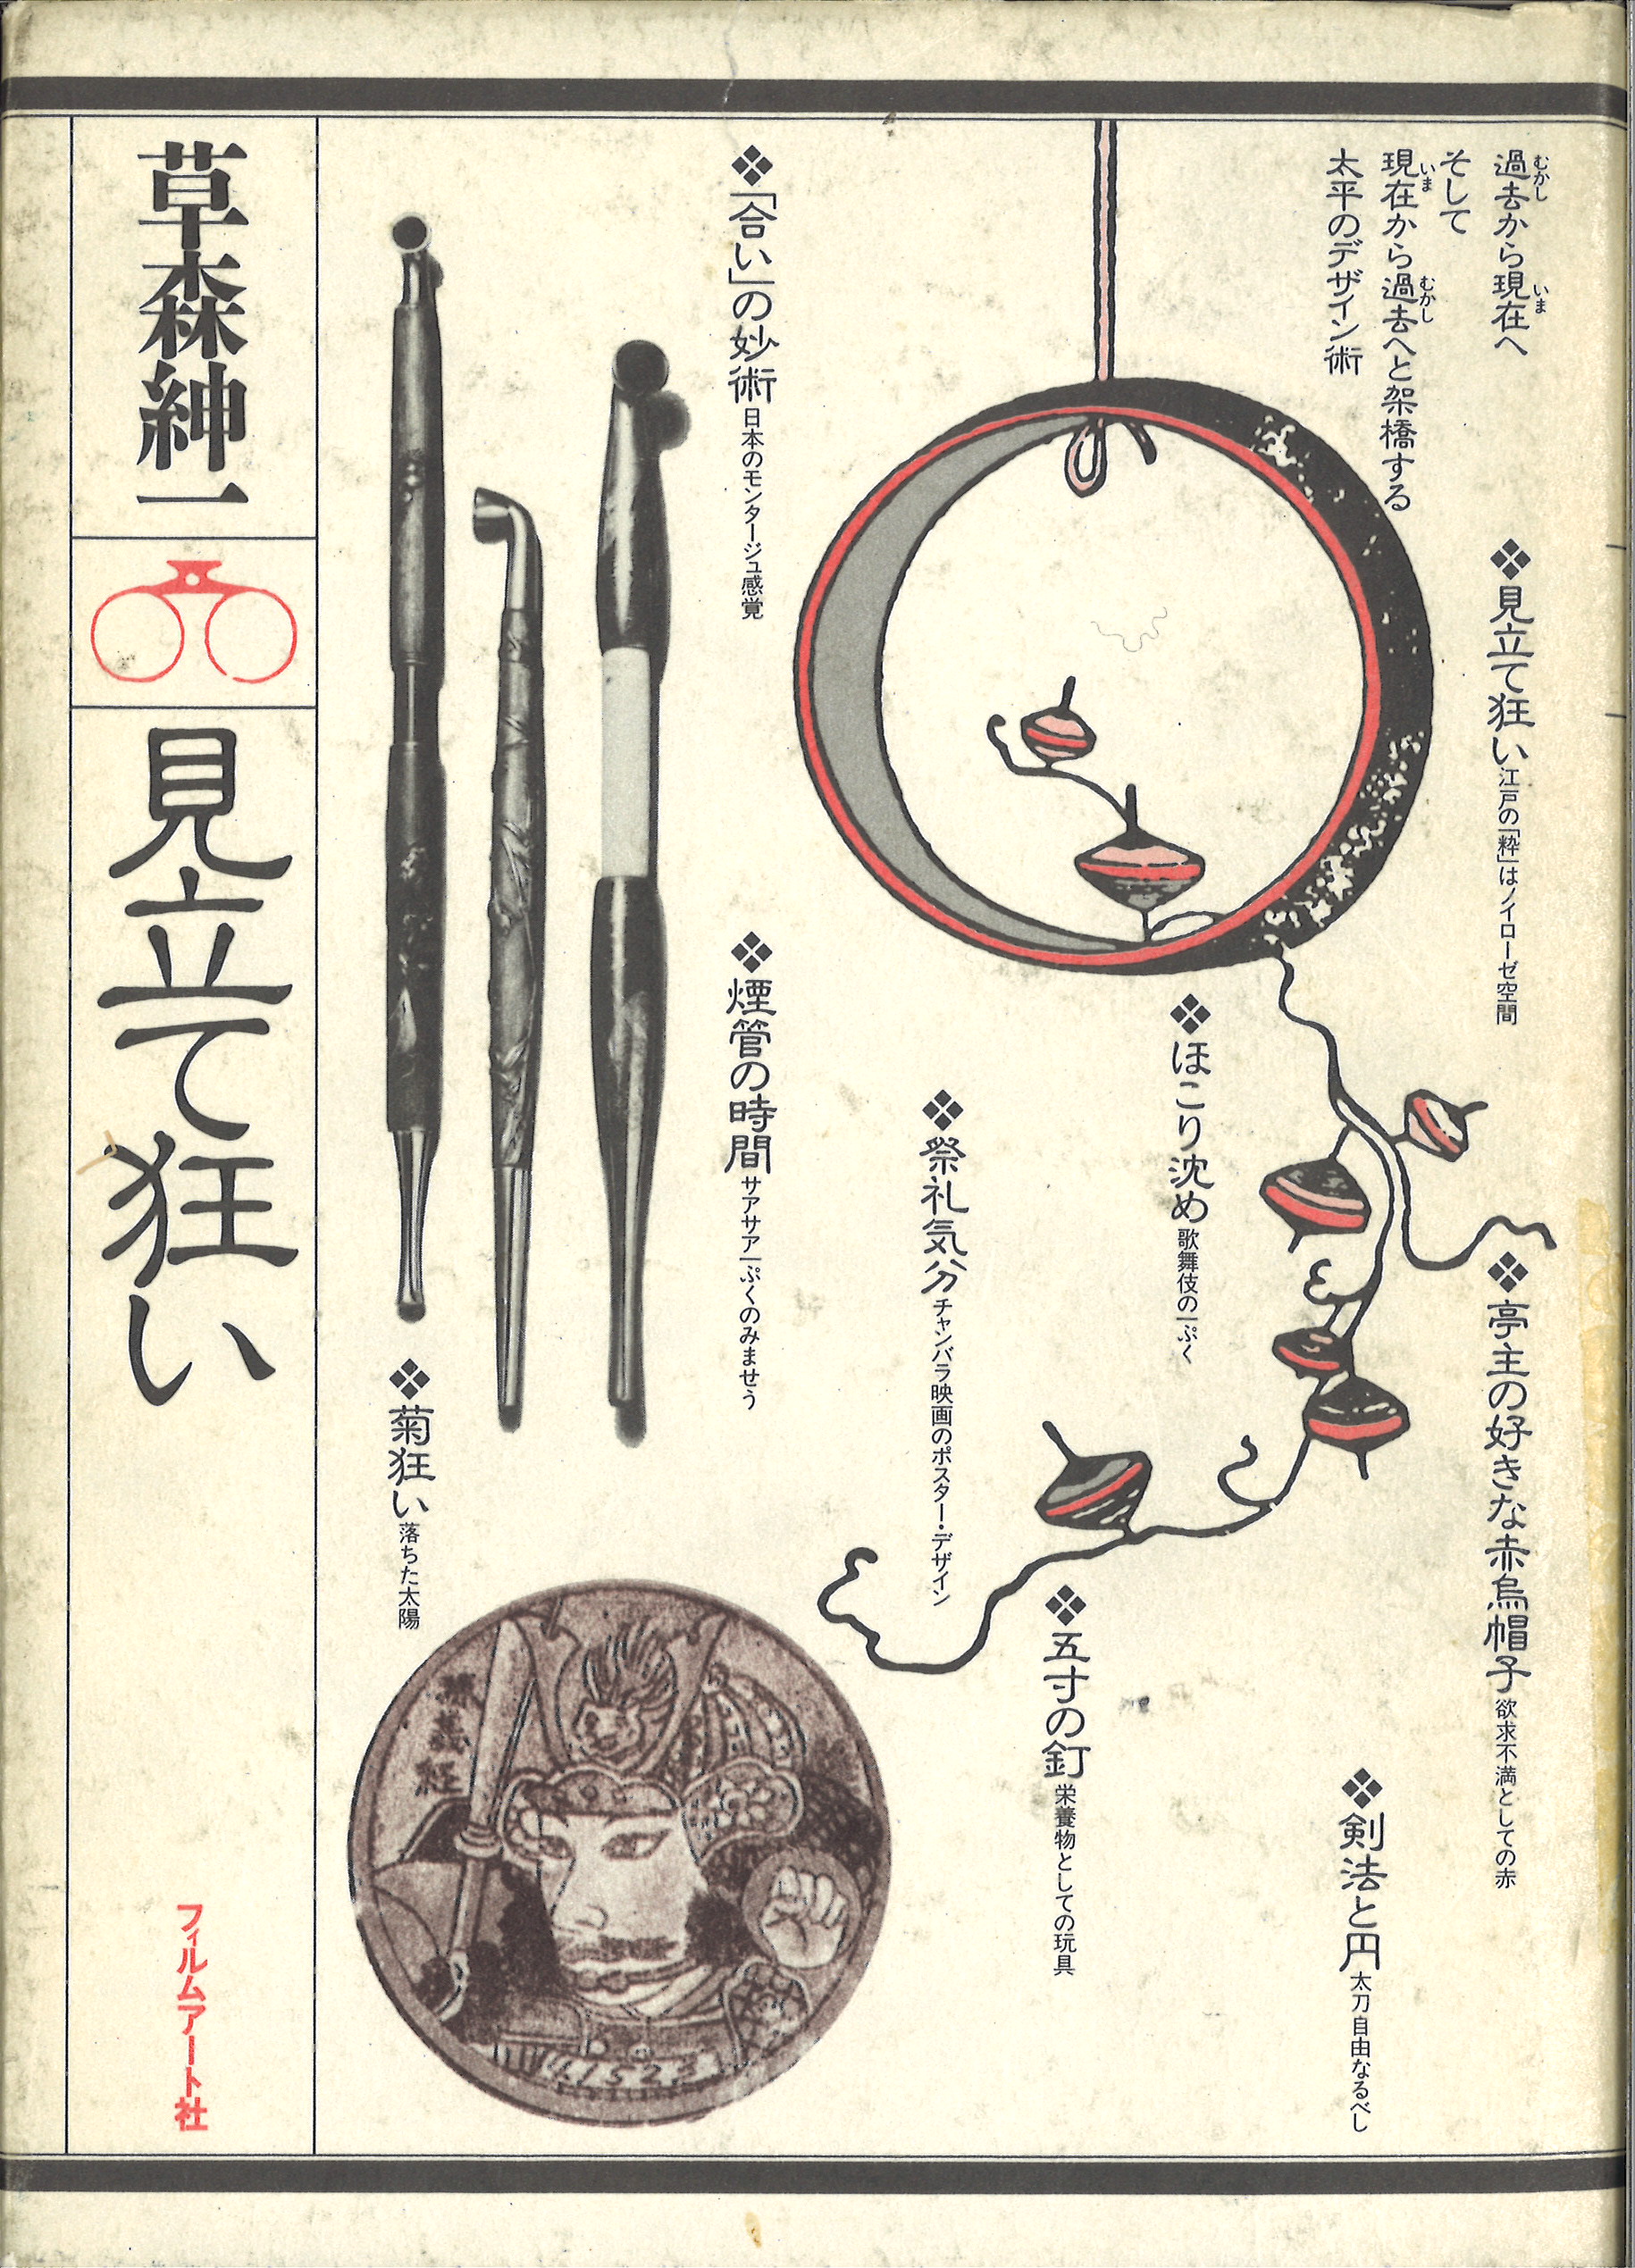 過去から現在へ
むかし
いま
そして
現在から過去へと架橋する
いま
むかし
太平のデザイン術
❖見立て狂い 江戸の「粋」はノイローゼ空間
❖亭主の好きな赤烏帽子 欲求不満としての赤
❖剣法と円 太刀自由なるべし
❖ほこり沈め 歌舞伎の一ぷく
❖五寸の釘 栄養物としての玩具
❖祭礼気分 チャンバラ映画のポスター・デザイン
❖「合い」の妙術 日本のモンタージュ感覚
❖煙管の時間 サアサア一ぷくのみませう
❖菊狂い 落ちた太陽
源義経
41523
草森紳一
見立て狂い
フィルムアート社